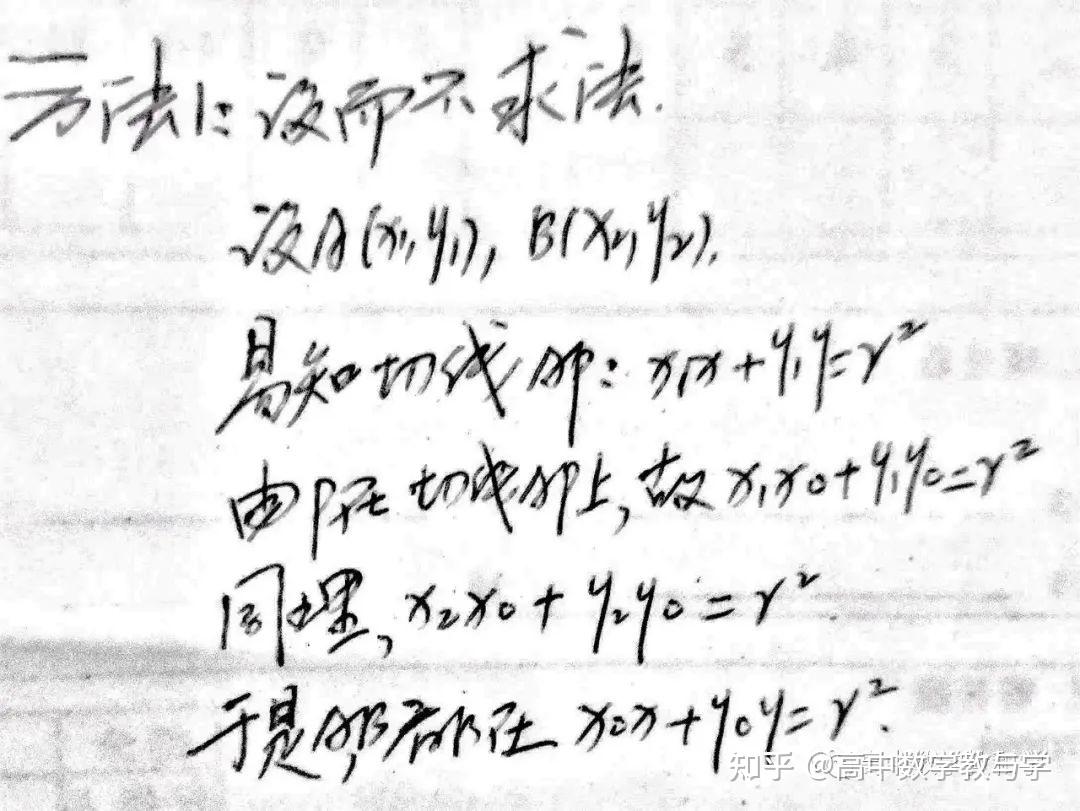 方法1:设而不求法.
设A(x₁,y₁), B(x₂,y₂).
易知切线AP: x₁x+y₁y=r²
由P在切线AP上,故x₁x₀+y₁y₀=r²
同理,x₂x₀+y₂y₀=r²
于是,AB都在x₀x+y₀y=r².
知乎 @高中数学教与学